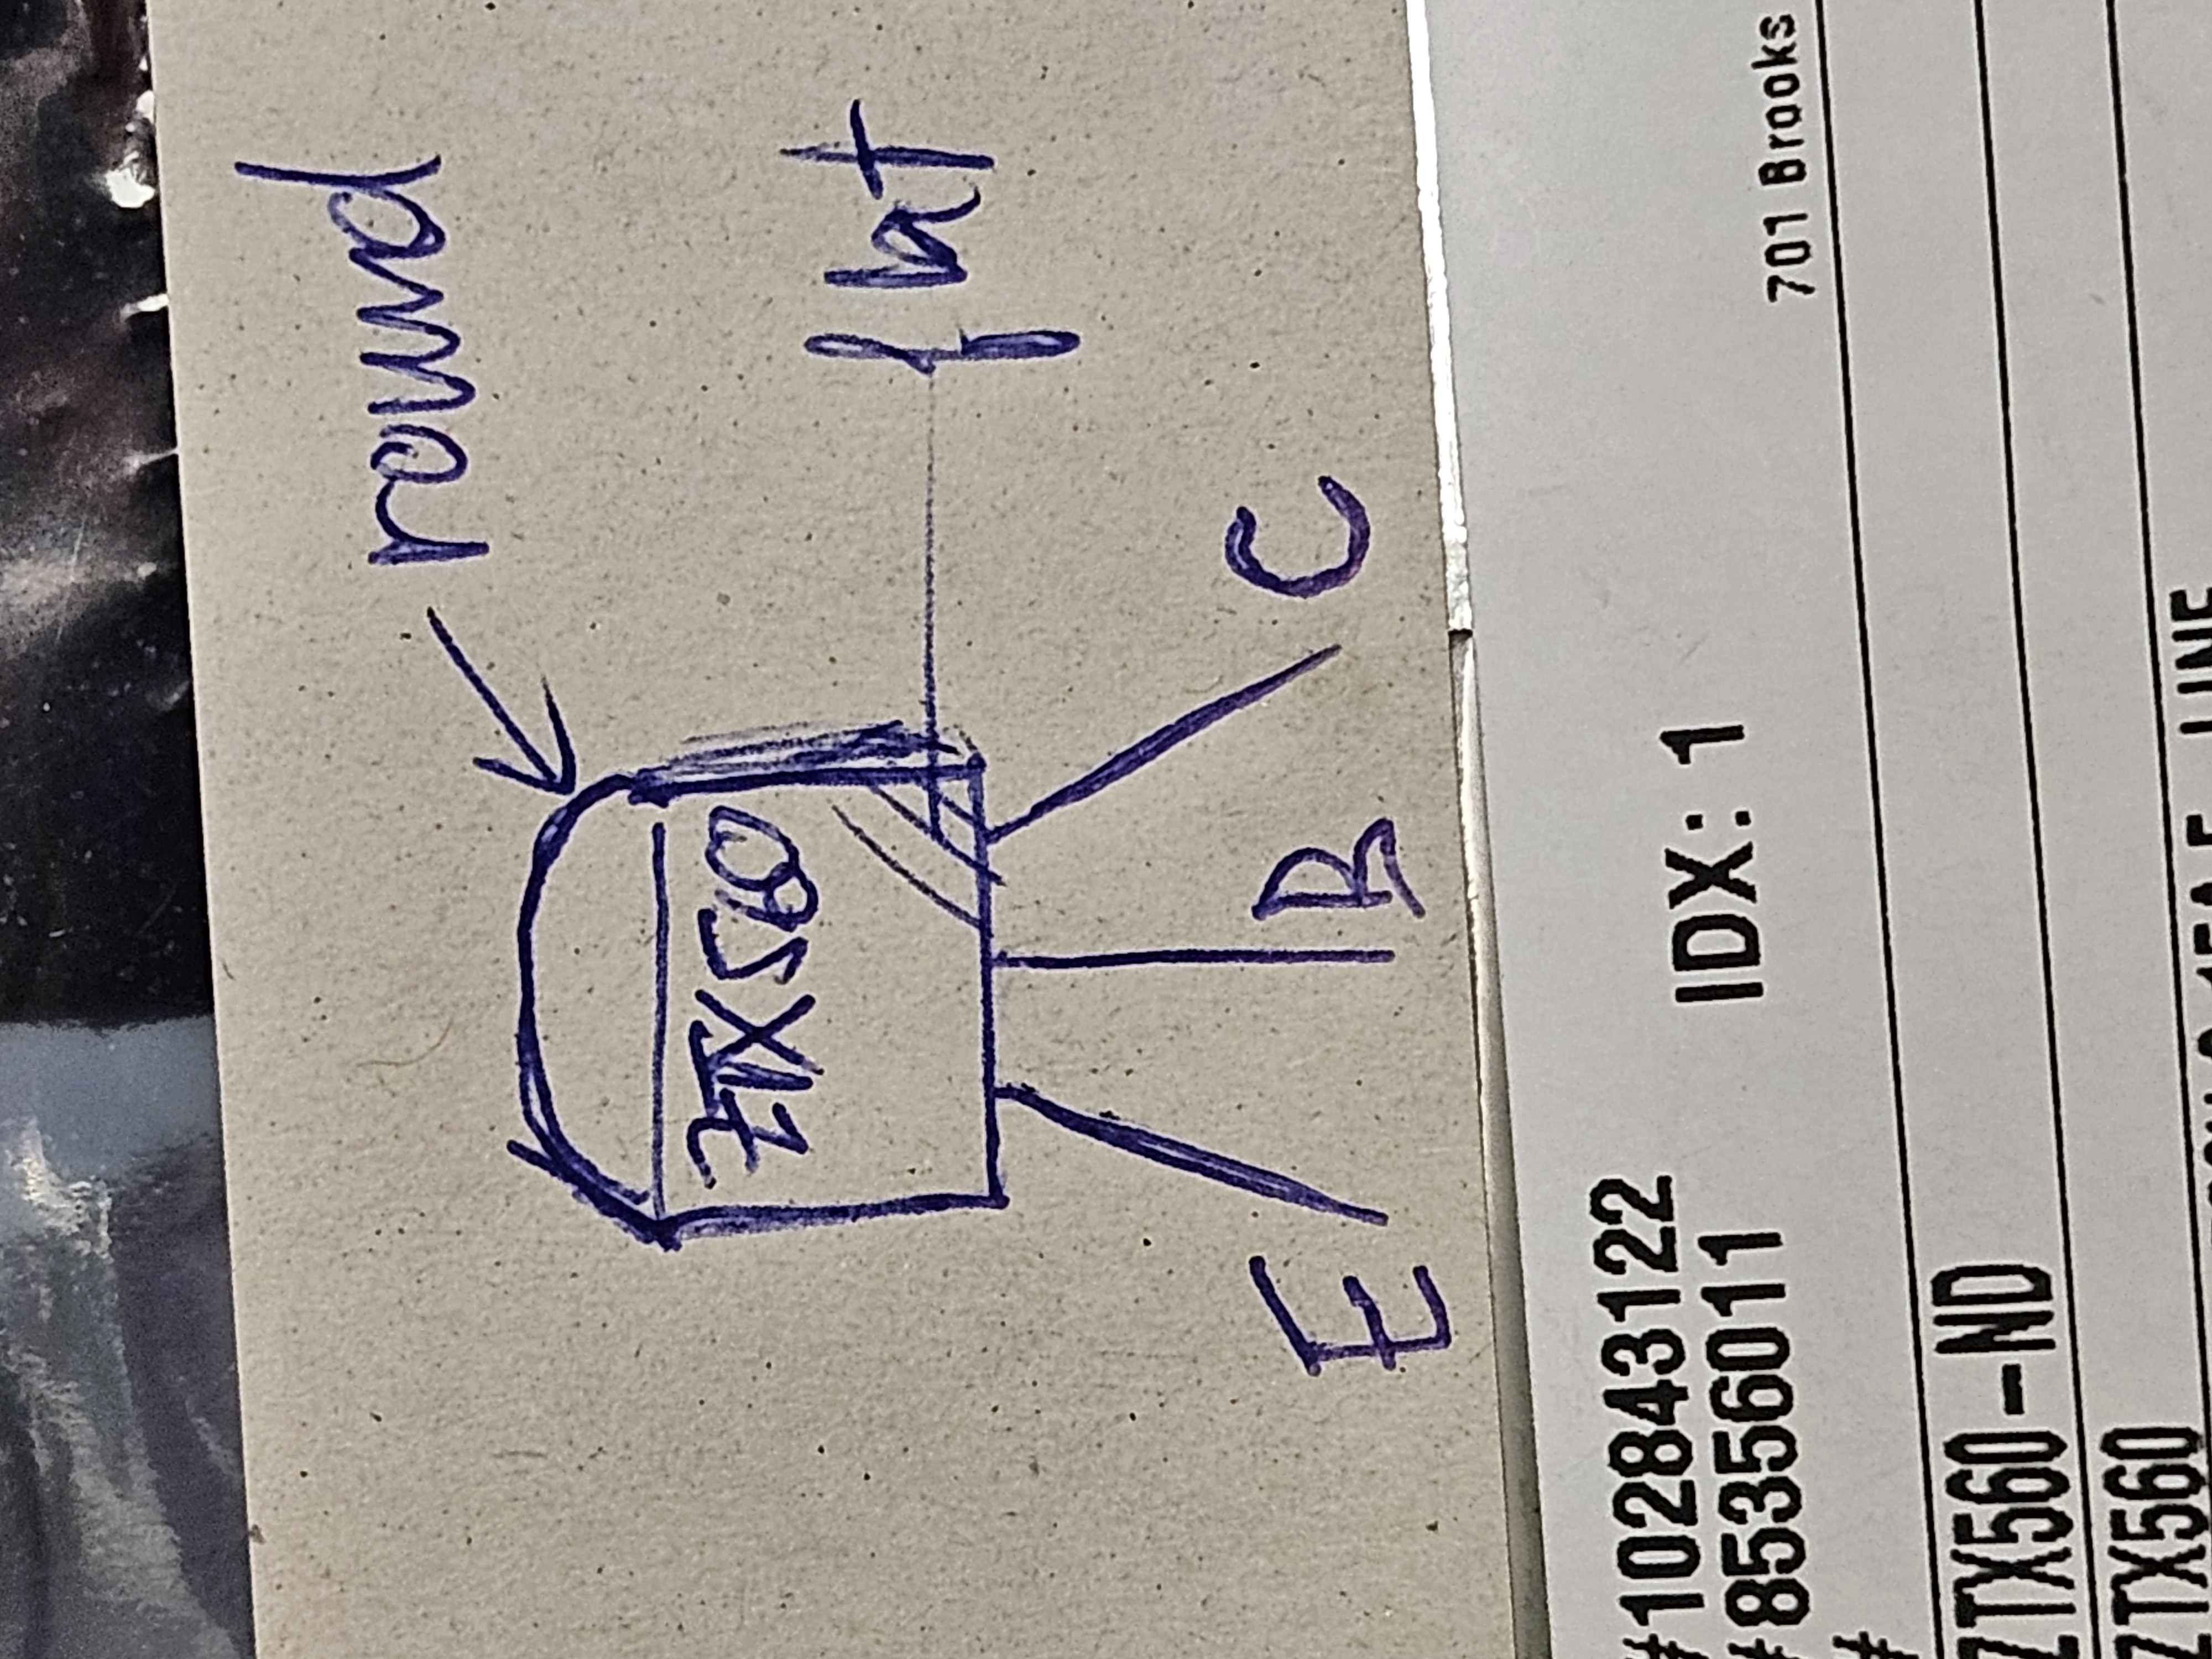 round
ZTX560
flat
E B C
#102843122
#85356011
IDX: 1
701 Brooks
#
ZTX560-ND
ZTX560
LINE